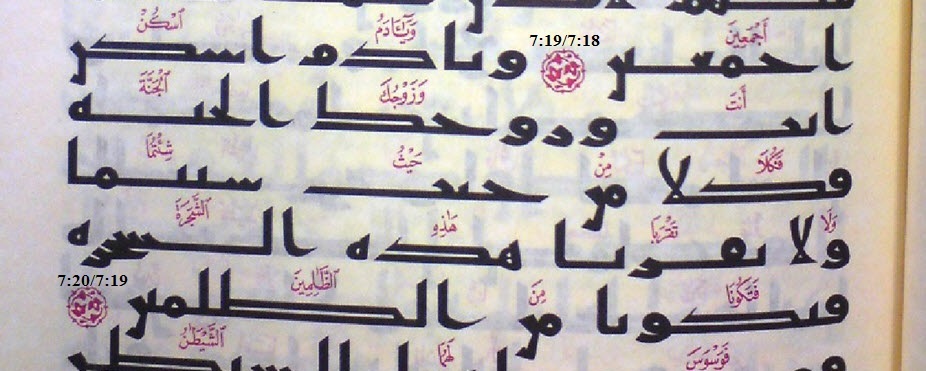 أَجْمَعِينَ وَيَٰٓـَٔادَمُ ٱسْكُنْ
احمعىں 7:19/7:18 وىادم اسكں
أَنتَ وَزَوْجُكَ ٱلْجَنَّةَ
اىٮ وروحک الحىه
فَكُلَا مِنْ حَيْثُ شِئْتُمَا
فكلا مں حىٮ سىىما
وَلَا تَقْرَبَا هَٰذِهِ ٱلشَّجَرَةَ
ولا ىڡرىا هده السحره
فَتَكُونَا مِنَ ٱلظَّٰلِمِينَ
ڡىكوىا مں الطلمىں 7:20/7:19
فَوَسْوَسَ لَهُمَا ٱلشَّيْطَٰنُ